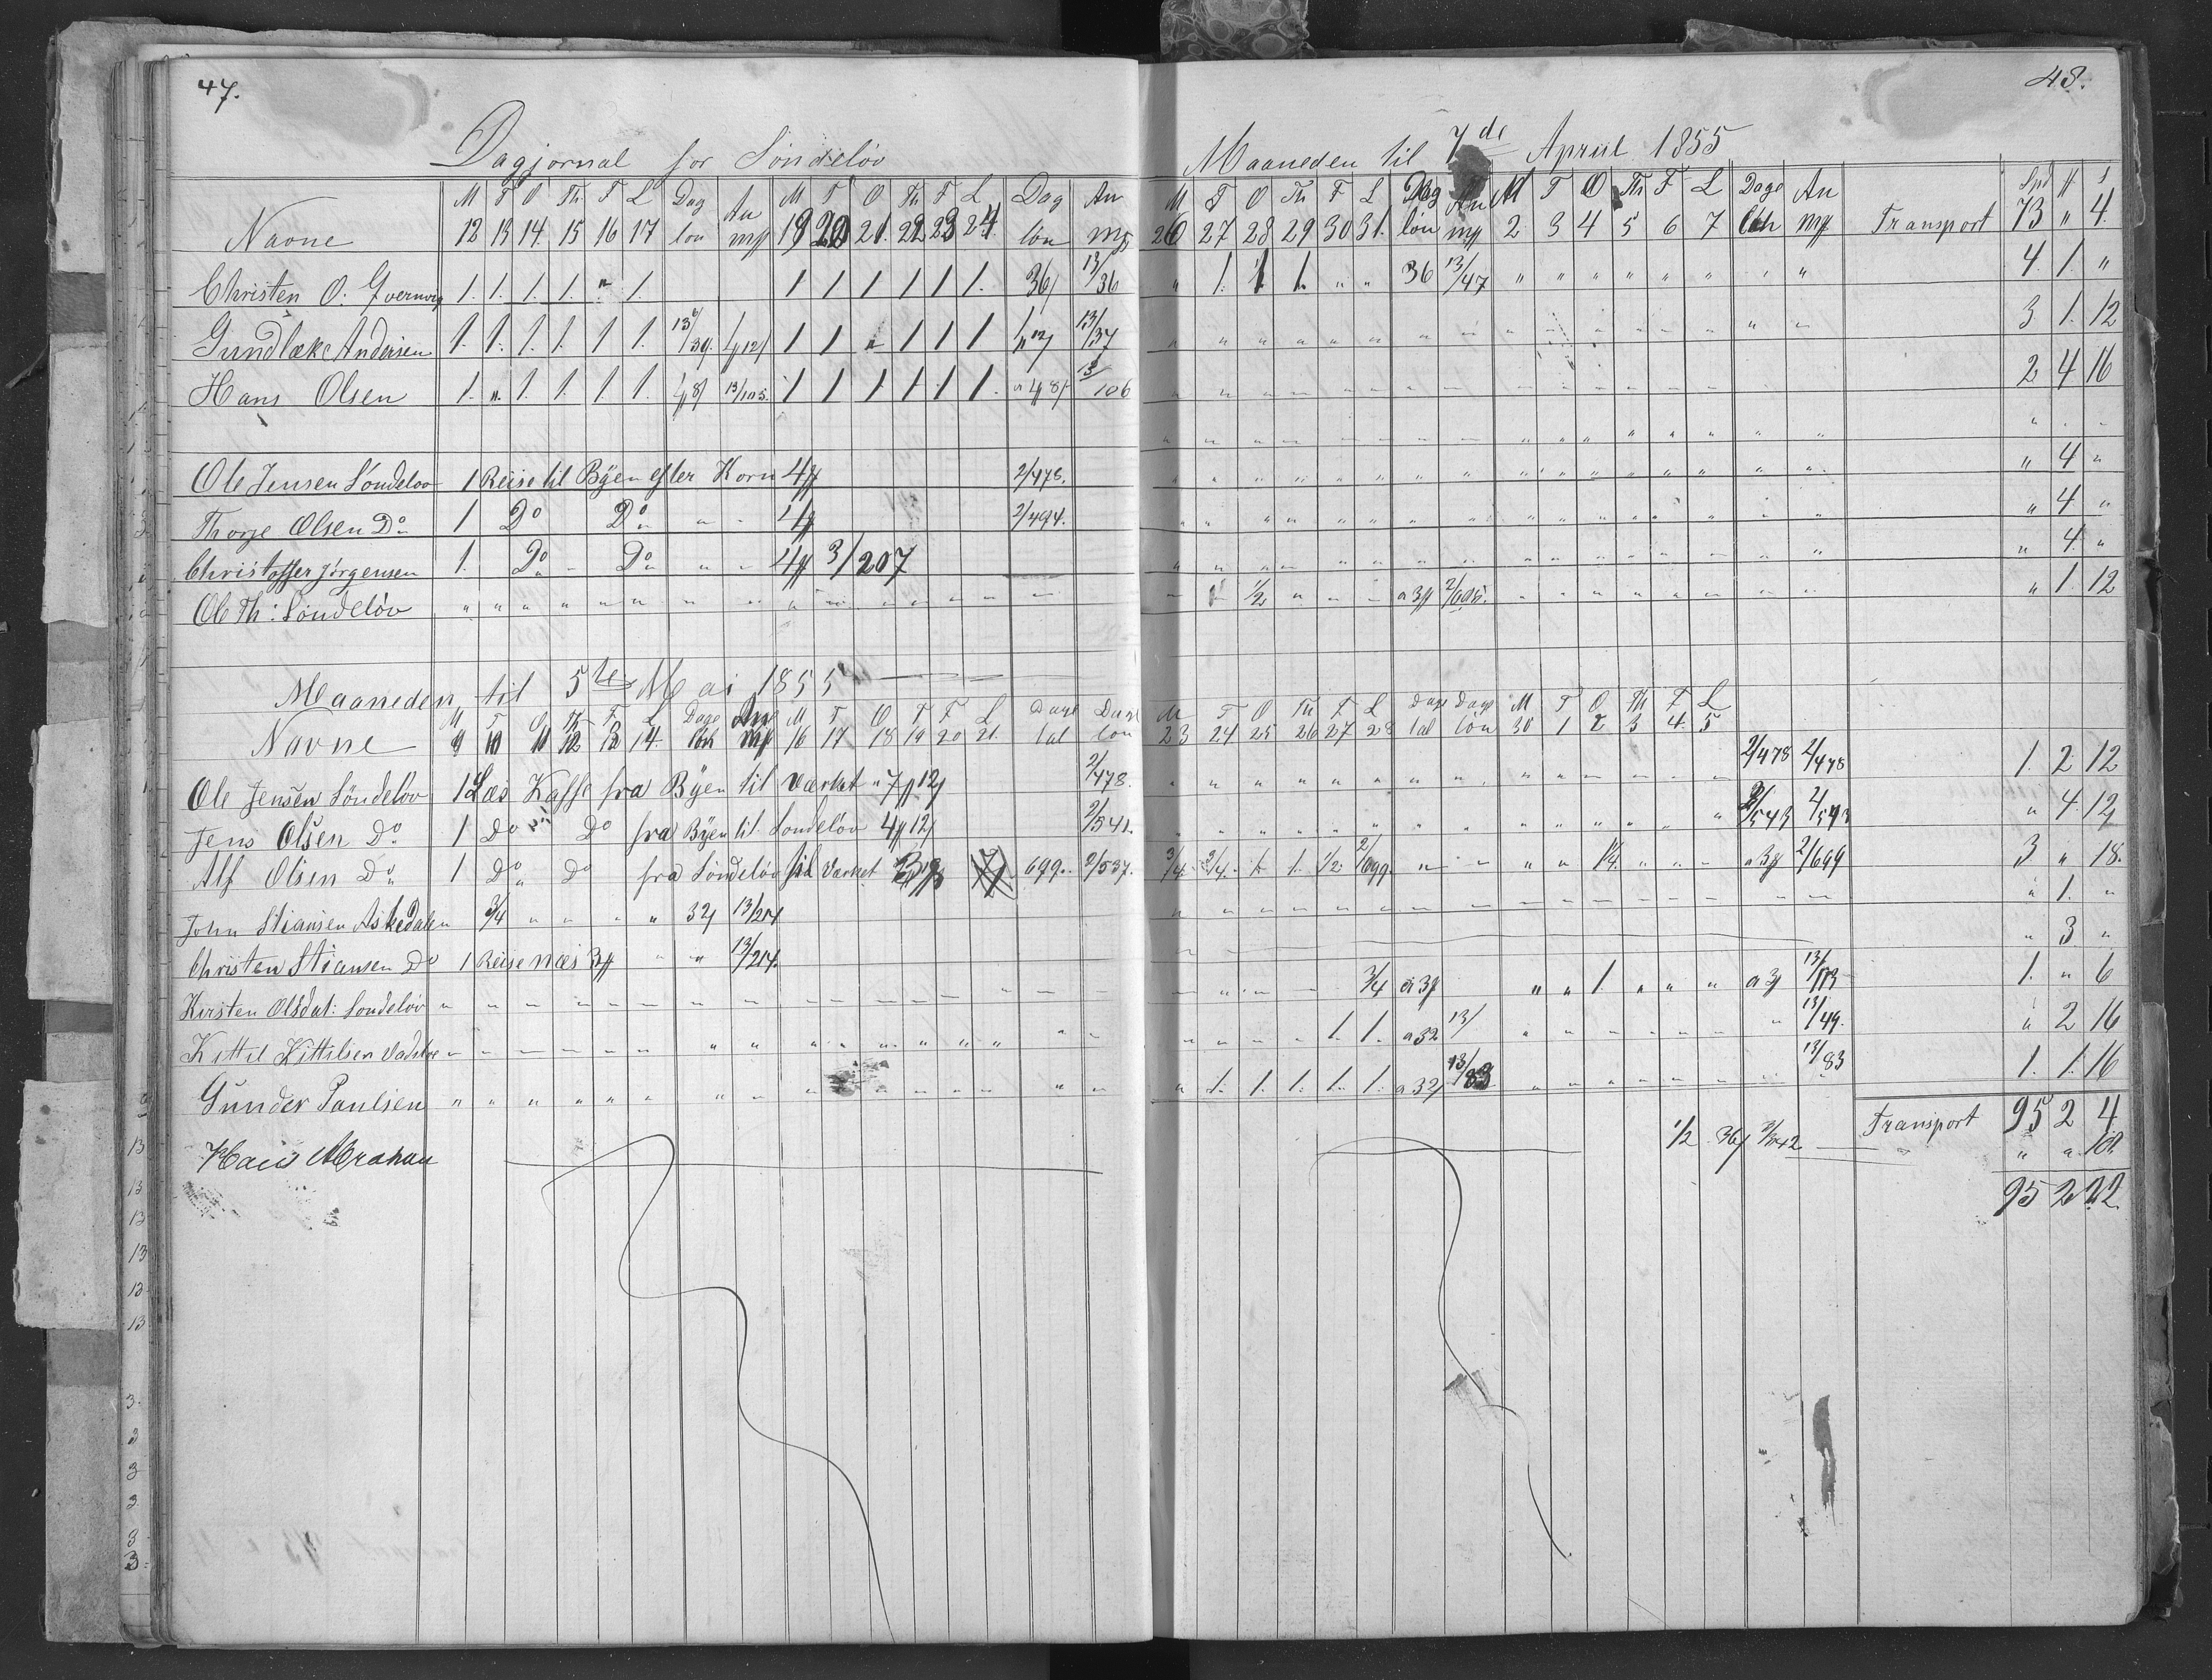 47.
48.
Dagjornal for Söndelöv Maaneden til 7de April 1855
M T O Th F L Dag An M T O Th F L Dag An M T O Th F L Dag An M T O Th F L Dage An Spd # s
Navne 12 13 14 15 16 17 lön mg 19 20 21 22 23 24 lön mg 26 27 28 29 30 31 lön mg 2 3 4 5 6 7 lön mg Transport 73 " 4
Christen O: 1. 1. 1. 1. " 1. 1 1 1 1 1 1. 36 13/36 " 1. 1 1. " " 36 13/47 " " " " " " " " 4. 1. "
Gundlake Andersen 1. 1. 1. 1. 1 1. 13/39. 12 1 1 " 1 1 1 12 13/37 " " " " " " " " " " " " " " " " 3 1. 12
Hans Olsen 1. ". 1. 1. 1. 1. 8 13/105. 1 1 1 1 1 1. 8 13/106 " " " " " " " " " " " " " " " " 2 4 16
Ole Jensen Söndelöv 1 Reise til Byen efter Korn 4# 2/478. " 4 "
Thorje Olsen Do 1 Do Do " " 4# 2/494. " 4 "
Christoffer Jörgensen 1. Do " Do " " 4# 3/207 " 4. "
Ole Th: Söndelöv " " " " " " " " " " " " " " " " 1/2 " " " a 3# " 1. 12
Maaneden til 5te Mai 1855
M T O Th F L Dage An M T O T F L Dage Dage M T O Th F L Dage Dage M T O Th F L
Navne 9 10 11 12 13 14. lön mg 16 17 18 19 20 21. tal lön 23 24 25 26 27 28 tal lön 30 1 2 3 4. 5
Ole Jensen Söndelöv 1 Læs Kaffe fra Byen til Værket " 7# 12 2/478. 2/478 2/478 1. 2 12
Jens Olsen Do. 1 Do " Do fra Byen til Söndelöv 4# 12 2/541. 2/543 2/543 " 4. 12
Alf Olsen Do 1 Do Do fra Söndelöv til Værket 699. 2/537. 3/4. 3/4. 1. 1. 1/2. 2/699. " " " " 1/4. " " " a 3# 2/699 3 " 18.
John Stiansen Askedalen 3/4 " " " " 32 13/214 " 1. "
Christen Stiansen Do 1 Reise næs 3# " " 13/214. " 3 "
Kirsten Olsdat: Söndelöv " " " " " " 3/4 a 3# " " 1. " " " a 3# 13/113 1. " 6
Kittil Kittilsen " " " " " " 1. 1. a 32 13/ " " " " " " " 13/49. " 2 16
Gunder Paulsen " " " " " " " 1. 1. 1. 1. 1. a 32 13/83 " " " " " " 13/83 1. 1. 16
Transport 95 2 4
Hans Abraham 1/2 36 3/342 " " 18
95 2 22